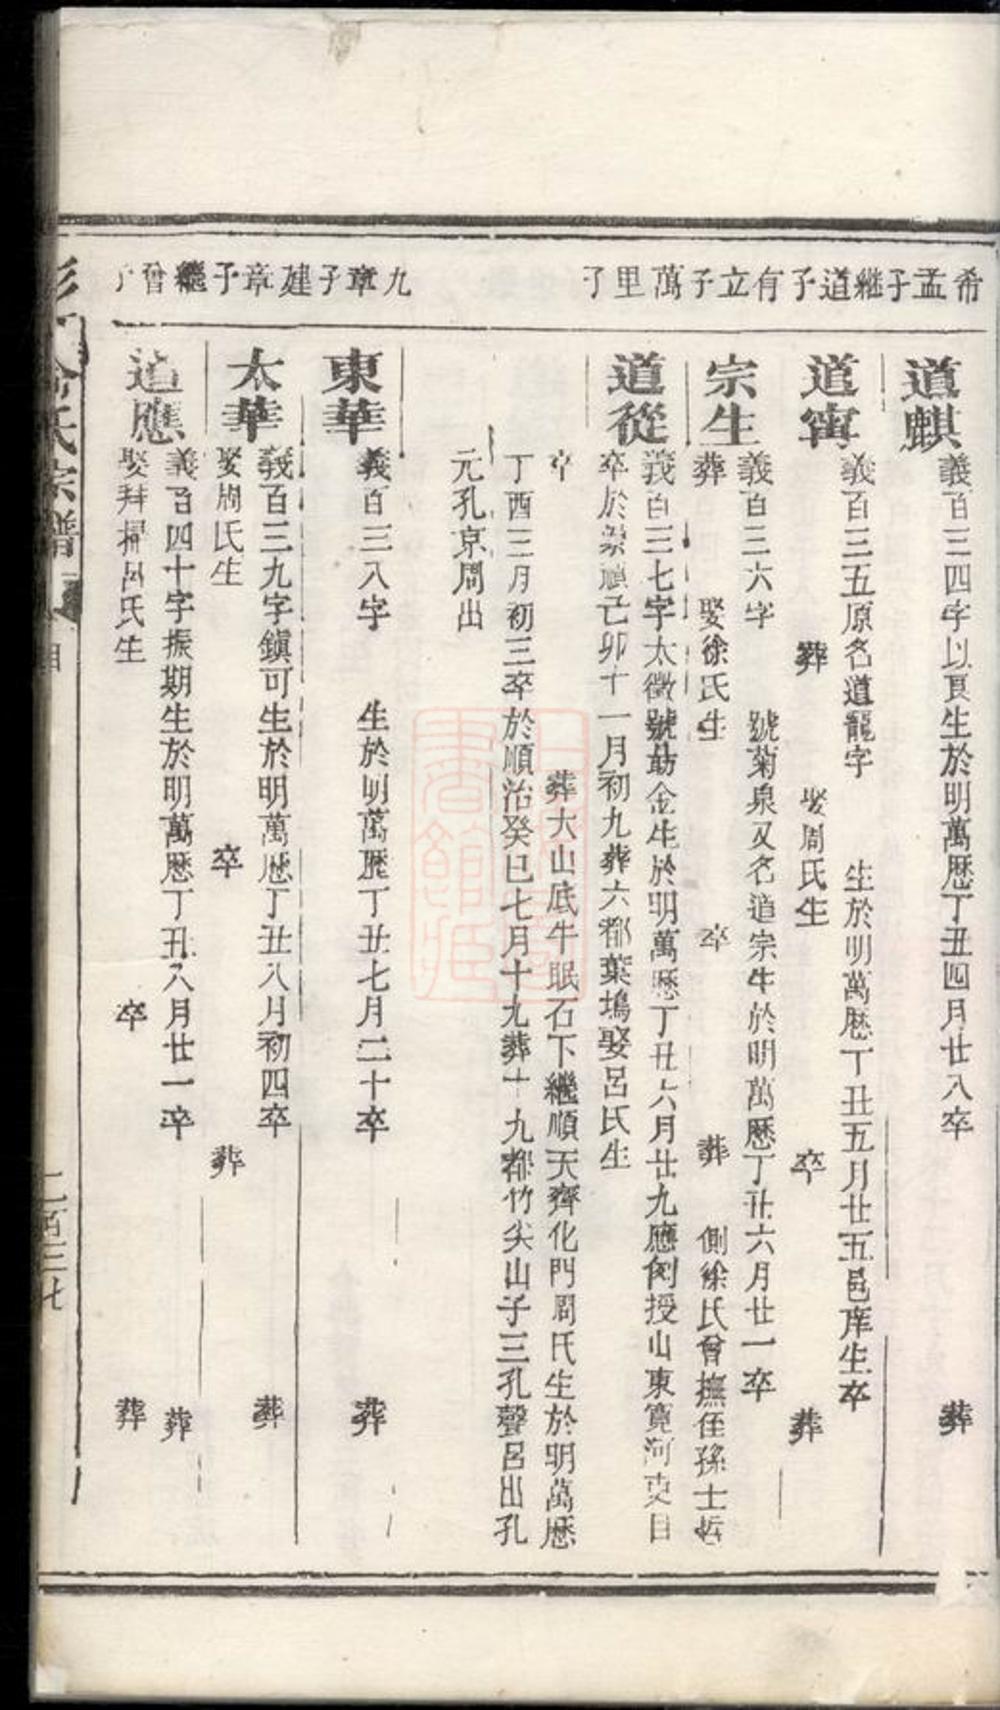 希孟子
繼道子
有立子
萬里子
九章子
建章子
繼曾子
道麒
義百三四字以真生於明萬歷丁丑四月廿八卒 葬
道寗
義百三五原名道龍字 生於明萬歷丁丑五月廿五邑庠生卒
葬 娶周氏生 卒 葬
宗生
義百三六字 號菊泉又名道宗生於明萬歷丁丑六月廿一卒
葬 娶徐氏生 卒 葬 側徐氏曾撫侄孫士哲
道從
義百三七字太徵號 金生於明萬歷丁丑六月廿九應例授山東寬河吏目
卒於崇禎己卯十一月初九葬六都葉塢娶呂氏生
卒 葬大山底牛眠石下繼順天齊化門周氏生於明萬歷
丁酉三月初三卒於順治癸巳七月十九葬十九都竹尖山子三孔聲呂出孔
元孔京周出
東華
義百三八字 生於明萬歷丁丑七月二十卒 葬
太華
義百三九字鎮可生於明萬歷丁丑八月初四卒 葬
娶周氏生 卒 葬
道應
義百四十字振期生於明萬歷丁丑八月廿一卒 葬
娶拜掃呂氏生 卒 葬
氏宗譜
二百三七